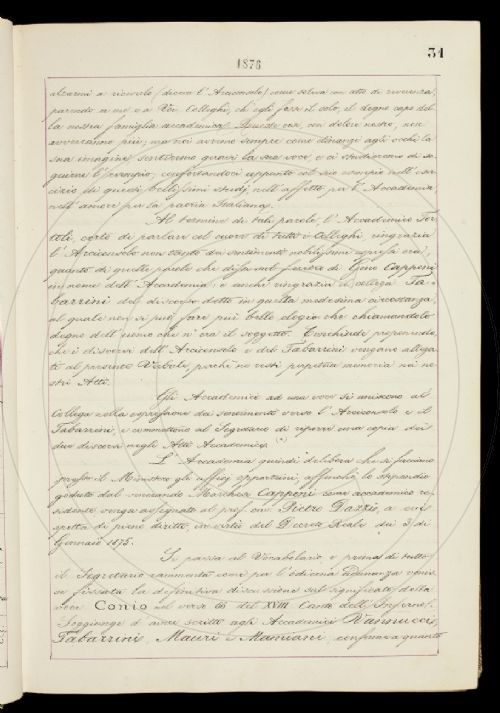 31
1876
alzarmi a riceverlo (diceva l'Arciconsolo) come soleva con atto di riverenza,
parendo a me e a Voi, Colleghi, ch'egli fosse il solo, il degno capo del-
la nostra famiglia accademica. Questo ora, con dolore nostro, non
avverrà più; ma noi avremo sempre come dinanzi agli occhi la
sua imagine, sentiremo quasi la sua voce, e ci studieremo di se-
guirne l'esempio, confortandoci appunto col suo esempio nell'eser-
cizio di questi bellissimi studj, nell'affetto per l'Accademia,
nell'amore per la patria Italiana.
Al termine di tali parole, l'Accademico Tor-
toli, certo di parlare col cuore di tutti i Colleghi, ringrazia
l'Arciconsolo non tanto dei sentimenti nobilissimi espressi ora,
quanto di quelle parole che disse sul feretro di Gino Capponi
in nome dell'Accademia; e anche ringrazia il collega Ta-
barrini del discorso detto in quella medesima circostanza,
al quale non si può fare più bello elogio che chiamandolo
degno dell'uomo che n'era il soggetto. Conchiude proponendo
che i discorsi dell'Arciconsolo e del Tabarrini vengano allega-
ti al presente Verbale, perchè ne resti perpetua memoria nei no-
stri Atti.
Gli Accademici ad una voce si uniscono al
Collega nella espressione dei sentimenti verso l'Arciconsolo e il
Tabarrini, e commettono al Segretario di inserire una copia dei
due discorsi negli Atti Accademici. (*)
L'Accademia quindi delibera che si facciano
presso il Ministero gli ufficj opportuni, affinchè lo stipendio
goduto dal Marchese Capponi come accademico re-
sidente venga assegnato al prof. cav. Pietro Dazzi, a cui
spetta di pieno diritto, in virtù del Decreto Reale dei 3 di
Gennaio 1875.
Si passa al Vocabolario, e prima di tutto
il Segretario rammenta come per l'odierna Adunanza venis-
se fissata la definitiva discussione sul significato della
voce Conio nel verso 66 del XVIII Canto dell'Inferno.
Soggiunge d'avere scritto agli Accademici Vannucci,
Tabarrini, Mauri e Mamiani, quanto